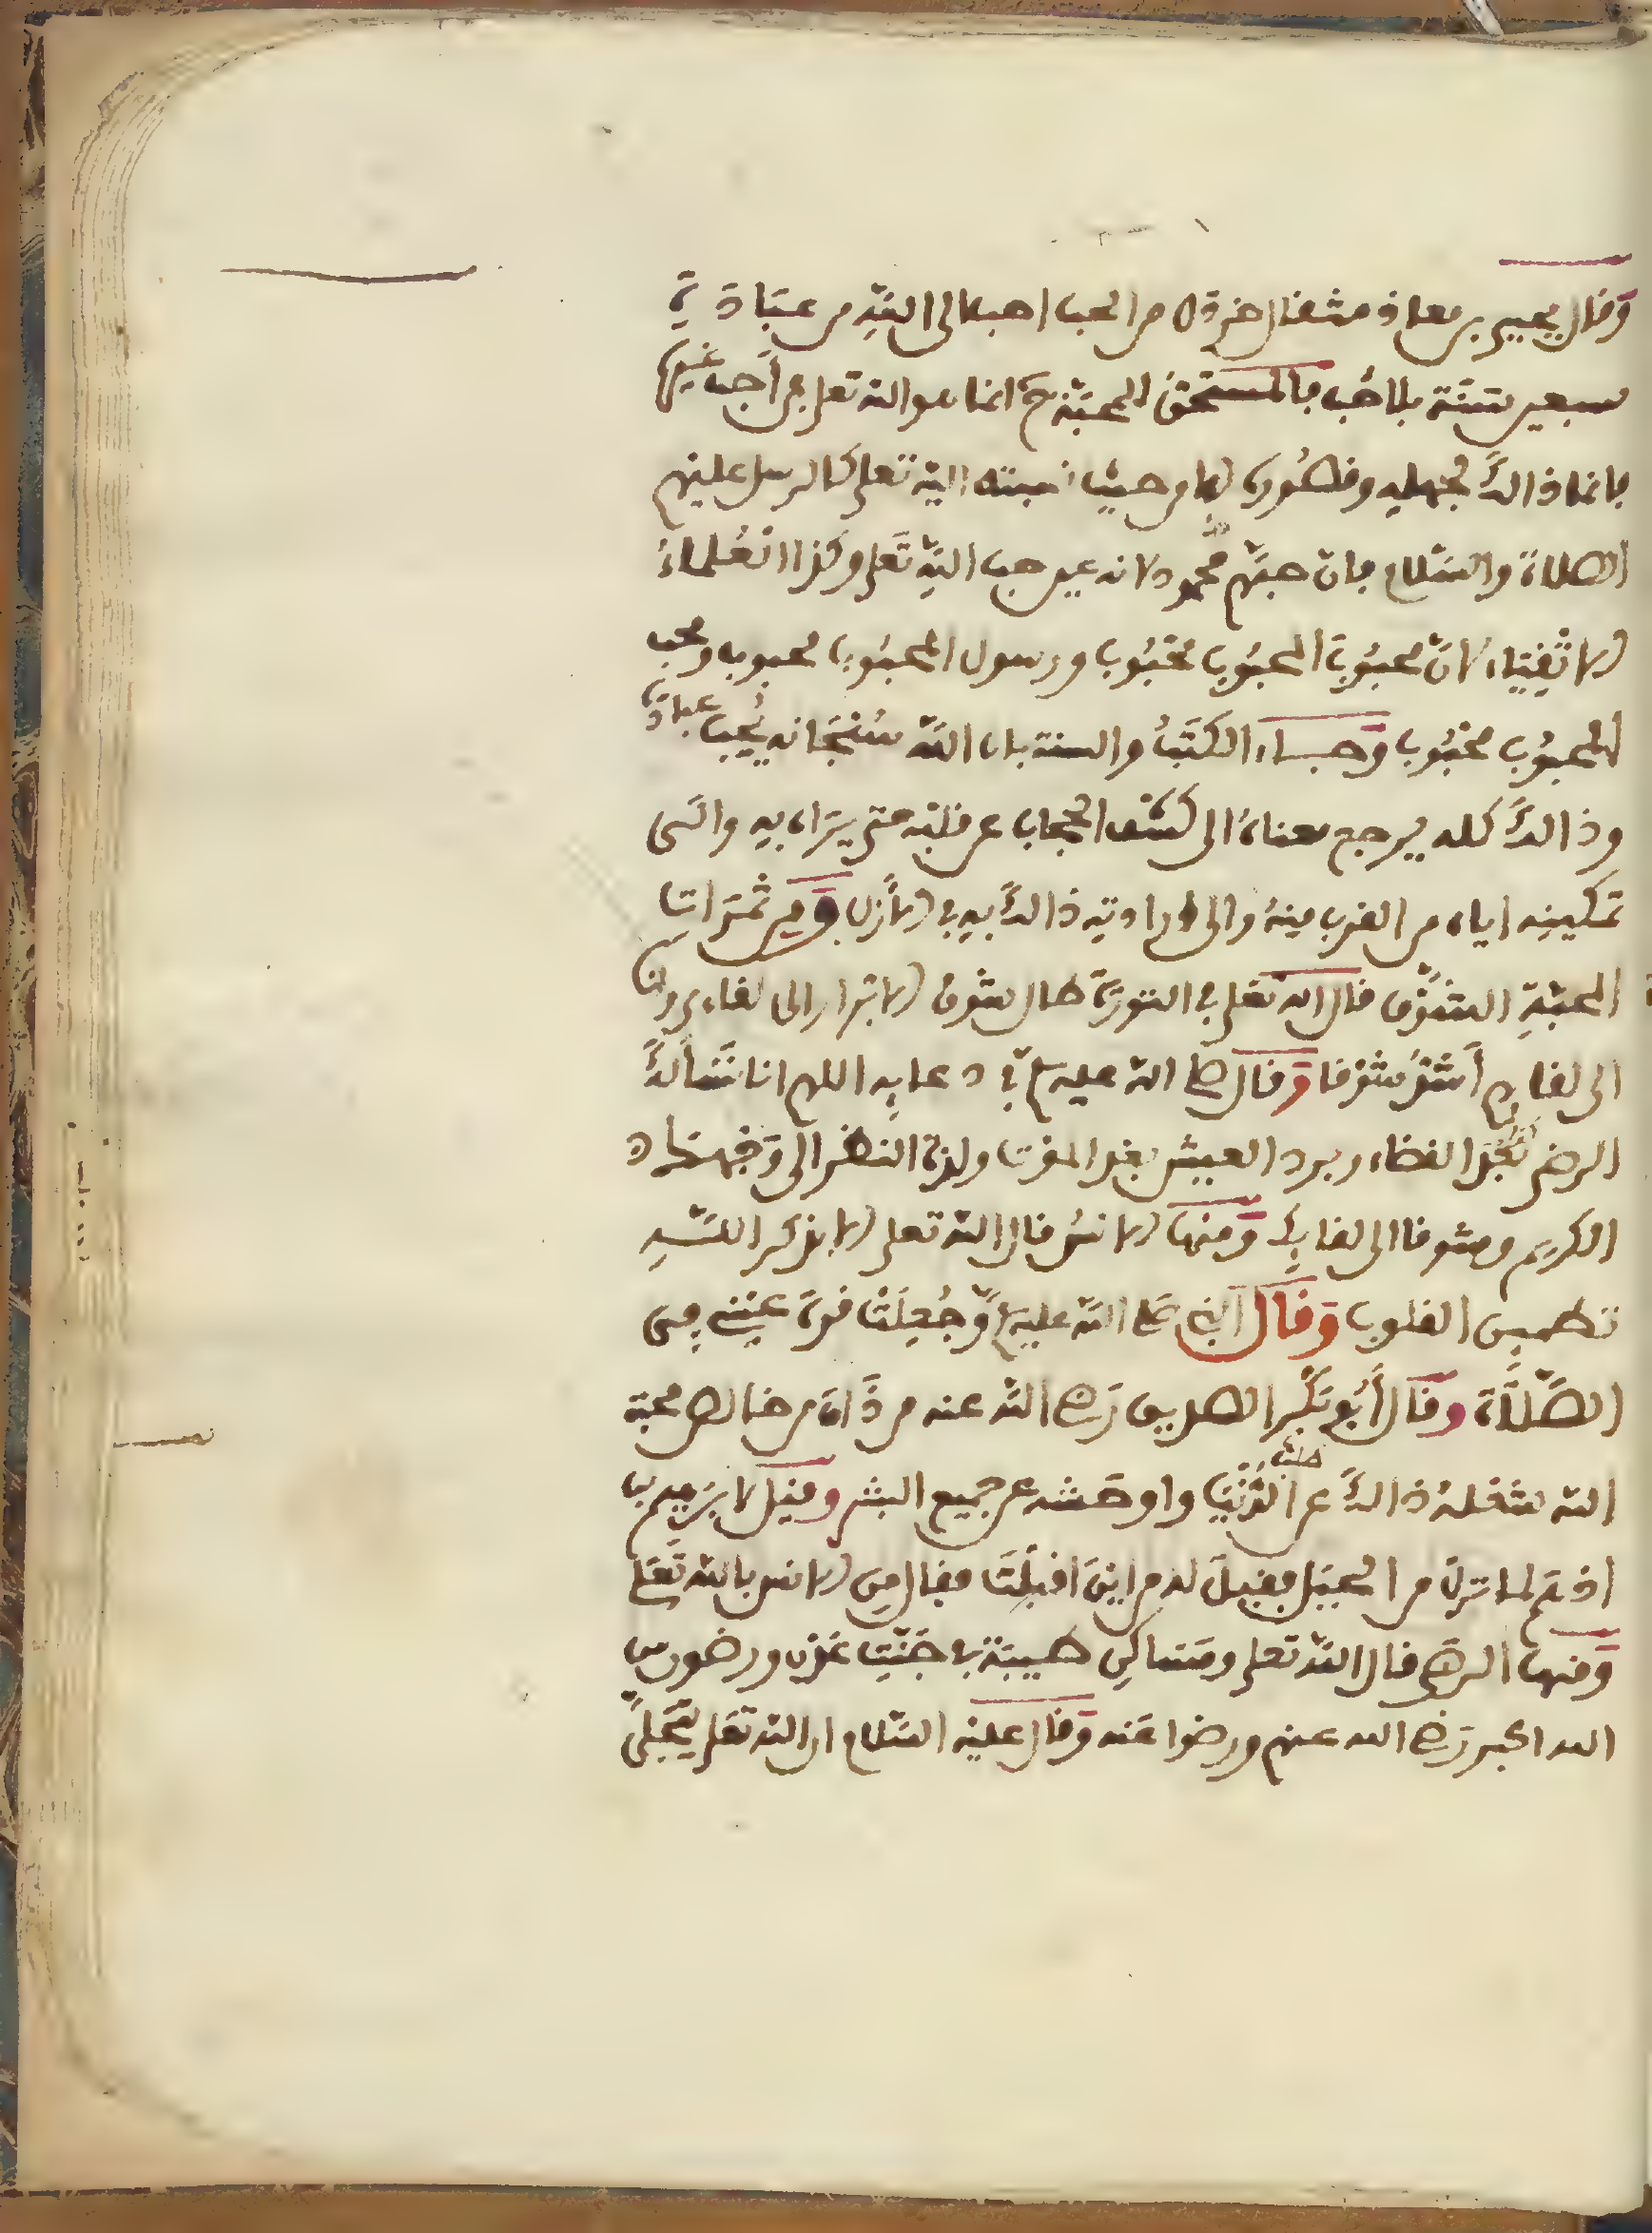 وَقال يحيى بن معاذ مثقال خردل من الحب احب الى اللهِ من عبادة
سبعين سَنَة بلا حُب فالمستحق المحبّة انما هو الله تعلى فمن أحب غيره
فانما ذالكَ لجهله وقصُوره لا من حيث نسبته الى اللّه تعلى كالرسل عليهم
الصلاة والسّلام فان حبّهم محمود لانه عين حب اللهِ تَعلى وكذا العُلماءُ
والاتْقِيَاء لانّ محبُوبَ المحبُوب محْبُوب ورسول المحبُوب محبوب ومحب
المحبُوب محْبُوب وَجاء الكتَبُ والسنة بان اللّه سُبْحَانه يُحِب عبادَه
وذالكَ كله يرجع معناهُ الى كشْف الحجاب عن قلبْه حتى يَرَاه به والى
تمكينِه اياه من القرب مِنهُ والى ارادتِه ذالكَ بِه في الأزل وَمِن ثمَرَات
المحبّةِ الشّوْق قال الله تعلى في التورىَة طال شوقُ الابْرار الى لقاءى وانا
الى لقايهم أَشَدُّ شَوْقا وَقال صلى اللّه عليه في دعايِه اللهم انا نَسْألكَ
الرضى بَعْدَ القضاء وبرد العيش بعد الموْت ولذة النظر الى وَجْهك
الكريم وشوقا الى لقايِك وَمِنها الانسُ قال اللّه تعلى الا بذكر اللّهِ
تطمين القلوب وَقَالَ النبي صلى اللّه عليه وَجُعِلَتْ قرة عيْنى فى
الصَّلَاَة وقَال أبُو بَكْر الصديق رَضي اللّه عنه من ذَاقَ من خالص محبة
اللّه شغلهُ ذالكَ عن طلب الدُّنْيَا واوحَشه عن جميع البشر وقيل لابرهيم بن
ادْهَم لما نزلَ من الجبَل فقيلَ له من اينَ اقبلْتَ فقال مِن الانس باللّه تَعَلى
وَمِنها الرضَى قال اللّه تعلى ومَسَاكِن طيبَة في جَنّتِ عَدْن ورضوان من
الله اكبر رَضي الله عنهم ورضوا عَنه وَقال عليْه السّلام ان اللّه تعلى يتجَلى